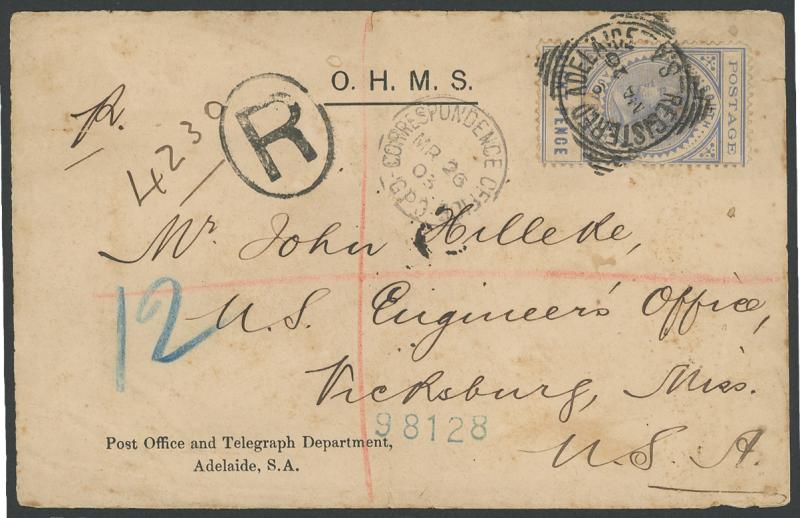 O. H. M. S.
R.
4230
R
CORRESPONDENCE
MR 26
03
G.P.O.
REGISTERED ADELAIDE
POSTAGE
PENCE
Mr. John Hilleke,
12
U.S. Engineer's Office,
Vicksburg, Miss.
98128
U. S. A.
Post Office and Telegraph Department,
Adelaide, S.A.